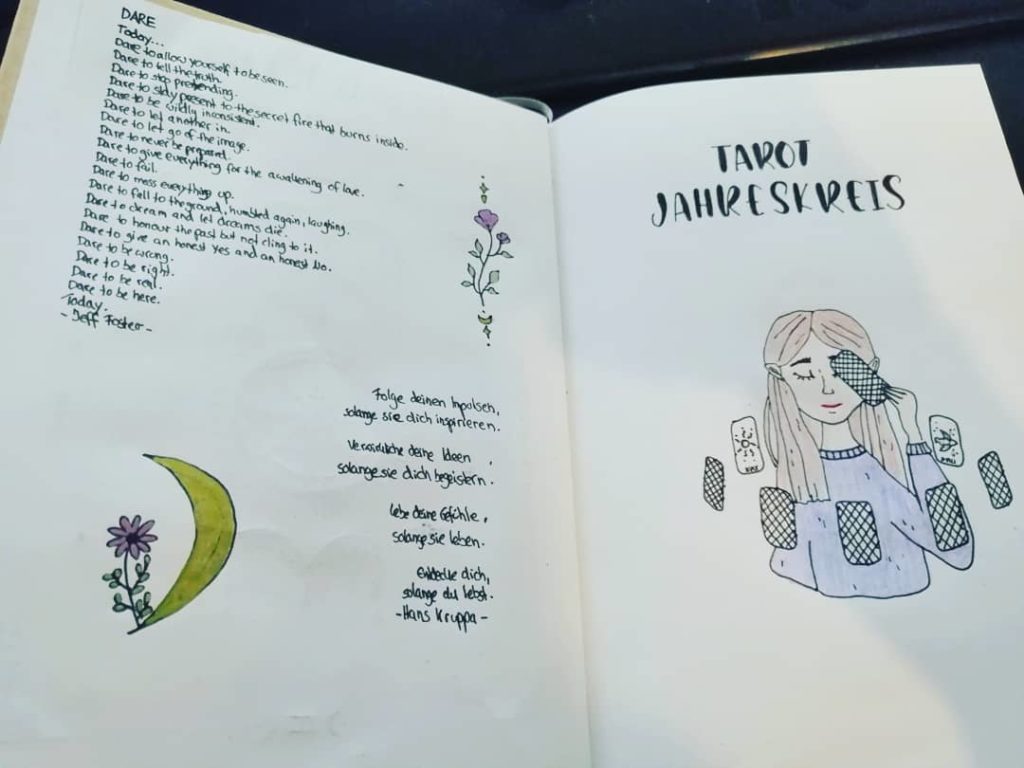 DARE
Today...
Dare to allow yourself to be seen.
Dare to tell the truth.
Dare to stop pretending.
Dare to stay present to the secret fire that burns inside.
Dare to be wildly inconsistent.
Dare to let another in.
Dare to let go of the image.
Dare to never be prepared.
Dare to give everything for the awakening of love.
Dare to fail.
Dare to mess everything up.
Dare to fall to the ground, humbled again, laughing.
Dare to dream and let dreams die.
Dare to honour the past but not cling to it.
Dare to give an honest Yes and an honest No.
Dare to be wrong.
Dare to be right.
Dare to be real.
Dare to be here.
Today.
-Jeff Foster-
Folge deinen Impulsen,
solange sie dich inspirieren.
Verwirkliche deine Ideen,
solange sie dich begeistern.
Lebe deine Gefühle,
solange sie leben.
Entdecke dich,
solange du lebst.
-Hans Kruppa-
TAROT
JAHRESKREIS